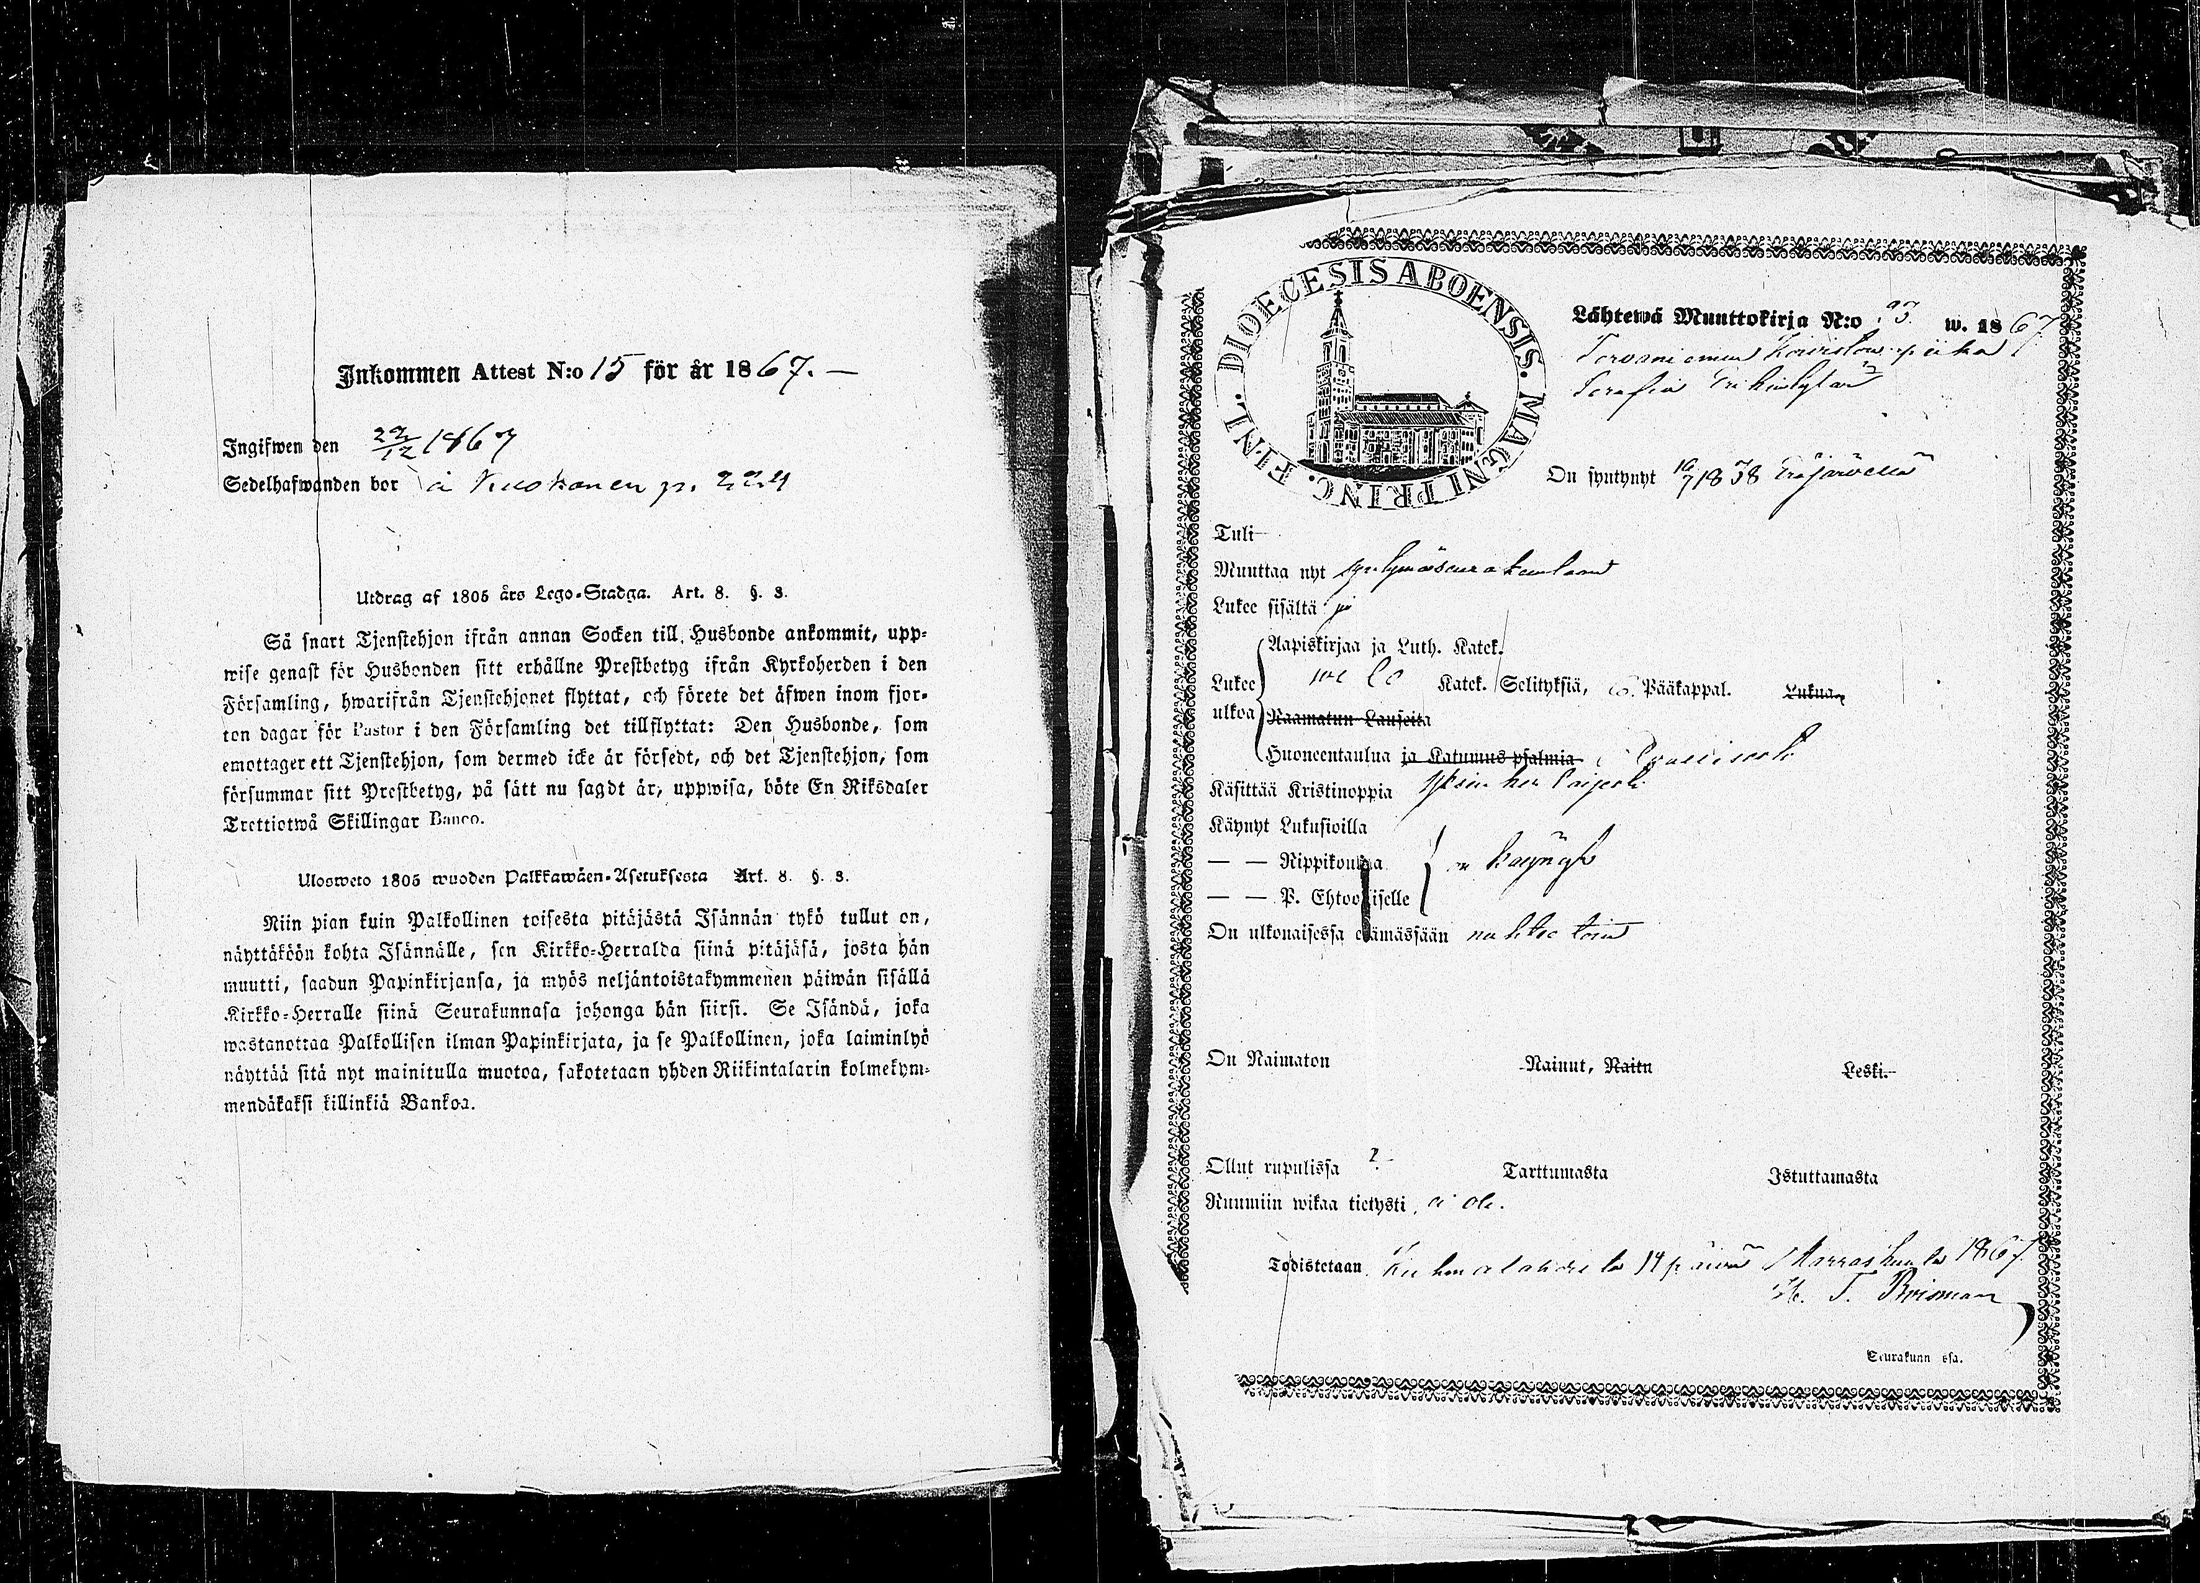 Inkommen Attest N:o 15 för år 1867. —
Ingifwen den 22/12 1867
Sedelhafwanden bor å Kuokanen p. 224
Utdrag af 1805 års Lego-Stadga. Art. 8. §. 3.
Så snart Tjenstehjon ifrån annan Socken till Husbonde ankommit, upp-
wise genast för Husbonden sitt erhållne Prestbetyg ifrån Kyrkoherden i den
Församling, hwarifrån Tjenstehjonet flyttat, och förete det äfwen inom fjor-
ton dagar för Pastor i den Församling det tillflyttat: Den Husbonde, som
emottager ett Tjenstehjon, som dermed icke är försedt, och det Tjenstehjon, som
försummar sitt Prestbetyg, på sätt nu sagdt är, uppwisa, böte En Riksdaler
Trettiotwå Skillingar Banco.
Ulosweto 1805 wuoden Palkkawäen-Asetuksesta Art. 8. §. 3.
Niin pian kuin Palkollinen toisesta pitäjästä Isännän tykö tullut on,
näyttäköön kohta Isännälle, sen Kirkko-Herralda siinä pitäjäsä, josta hän
muutti, saadun Papinkirjansa, ja myös neljäntoistakymmenen päiwän sisällä
Kirkko-Herralle siinä Seurakunnasa johonga hän siirsi. Se Isändä, joka
wastanottaa Palkollisen ilman Papinkirjata, ja se Palkollinen, joka laiminlyö
näyttää sitä nyt mainitulla muotoa, sakotetaan yhden Riikintalarin kolmekym-
mendäkaksi killinkiä Bankoa.
DIOECESIS ABOENSIS. MAGNI PRINC. FINL.
Lähtewä Muuttokirja N:o w. 1867
Koiviston piika
Serafia
On syntynyt 16/7 1838 Eräjärvellä
Tuli
Muuttaa nyt synlymäseurakuntaans
Lukee sisältä
Aapiskirjaa ja Luth. Katek.
Lukee Katek. Selityksiä, Pääkappal. Lukua,
ulkoa Raamatun Lauseita
Huoneentaulua ja Katumus psalmia
Käsittää Kristinoppia Yksinkertaisesti
Käynyt Lukusioilla
— — Rippikoulua on käynyt
— — P. Ehtoollisella
On ulkonaisessa elämässään nuhteetoin
On Naimaton Nainut, Naitu Leski.
Ollut rupulissa ? Tarttumasta Istuttamasta
Ruumiin wikaa tietysti ei ole.
Todistetaan Kuhmalahdella 14 päivä Marraskuuta 1867.
Seurakunn ssa.